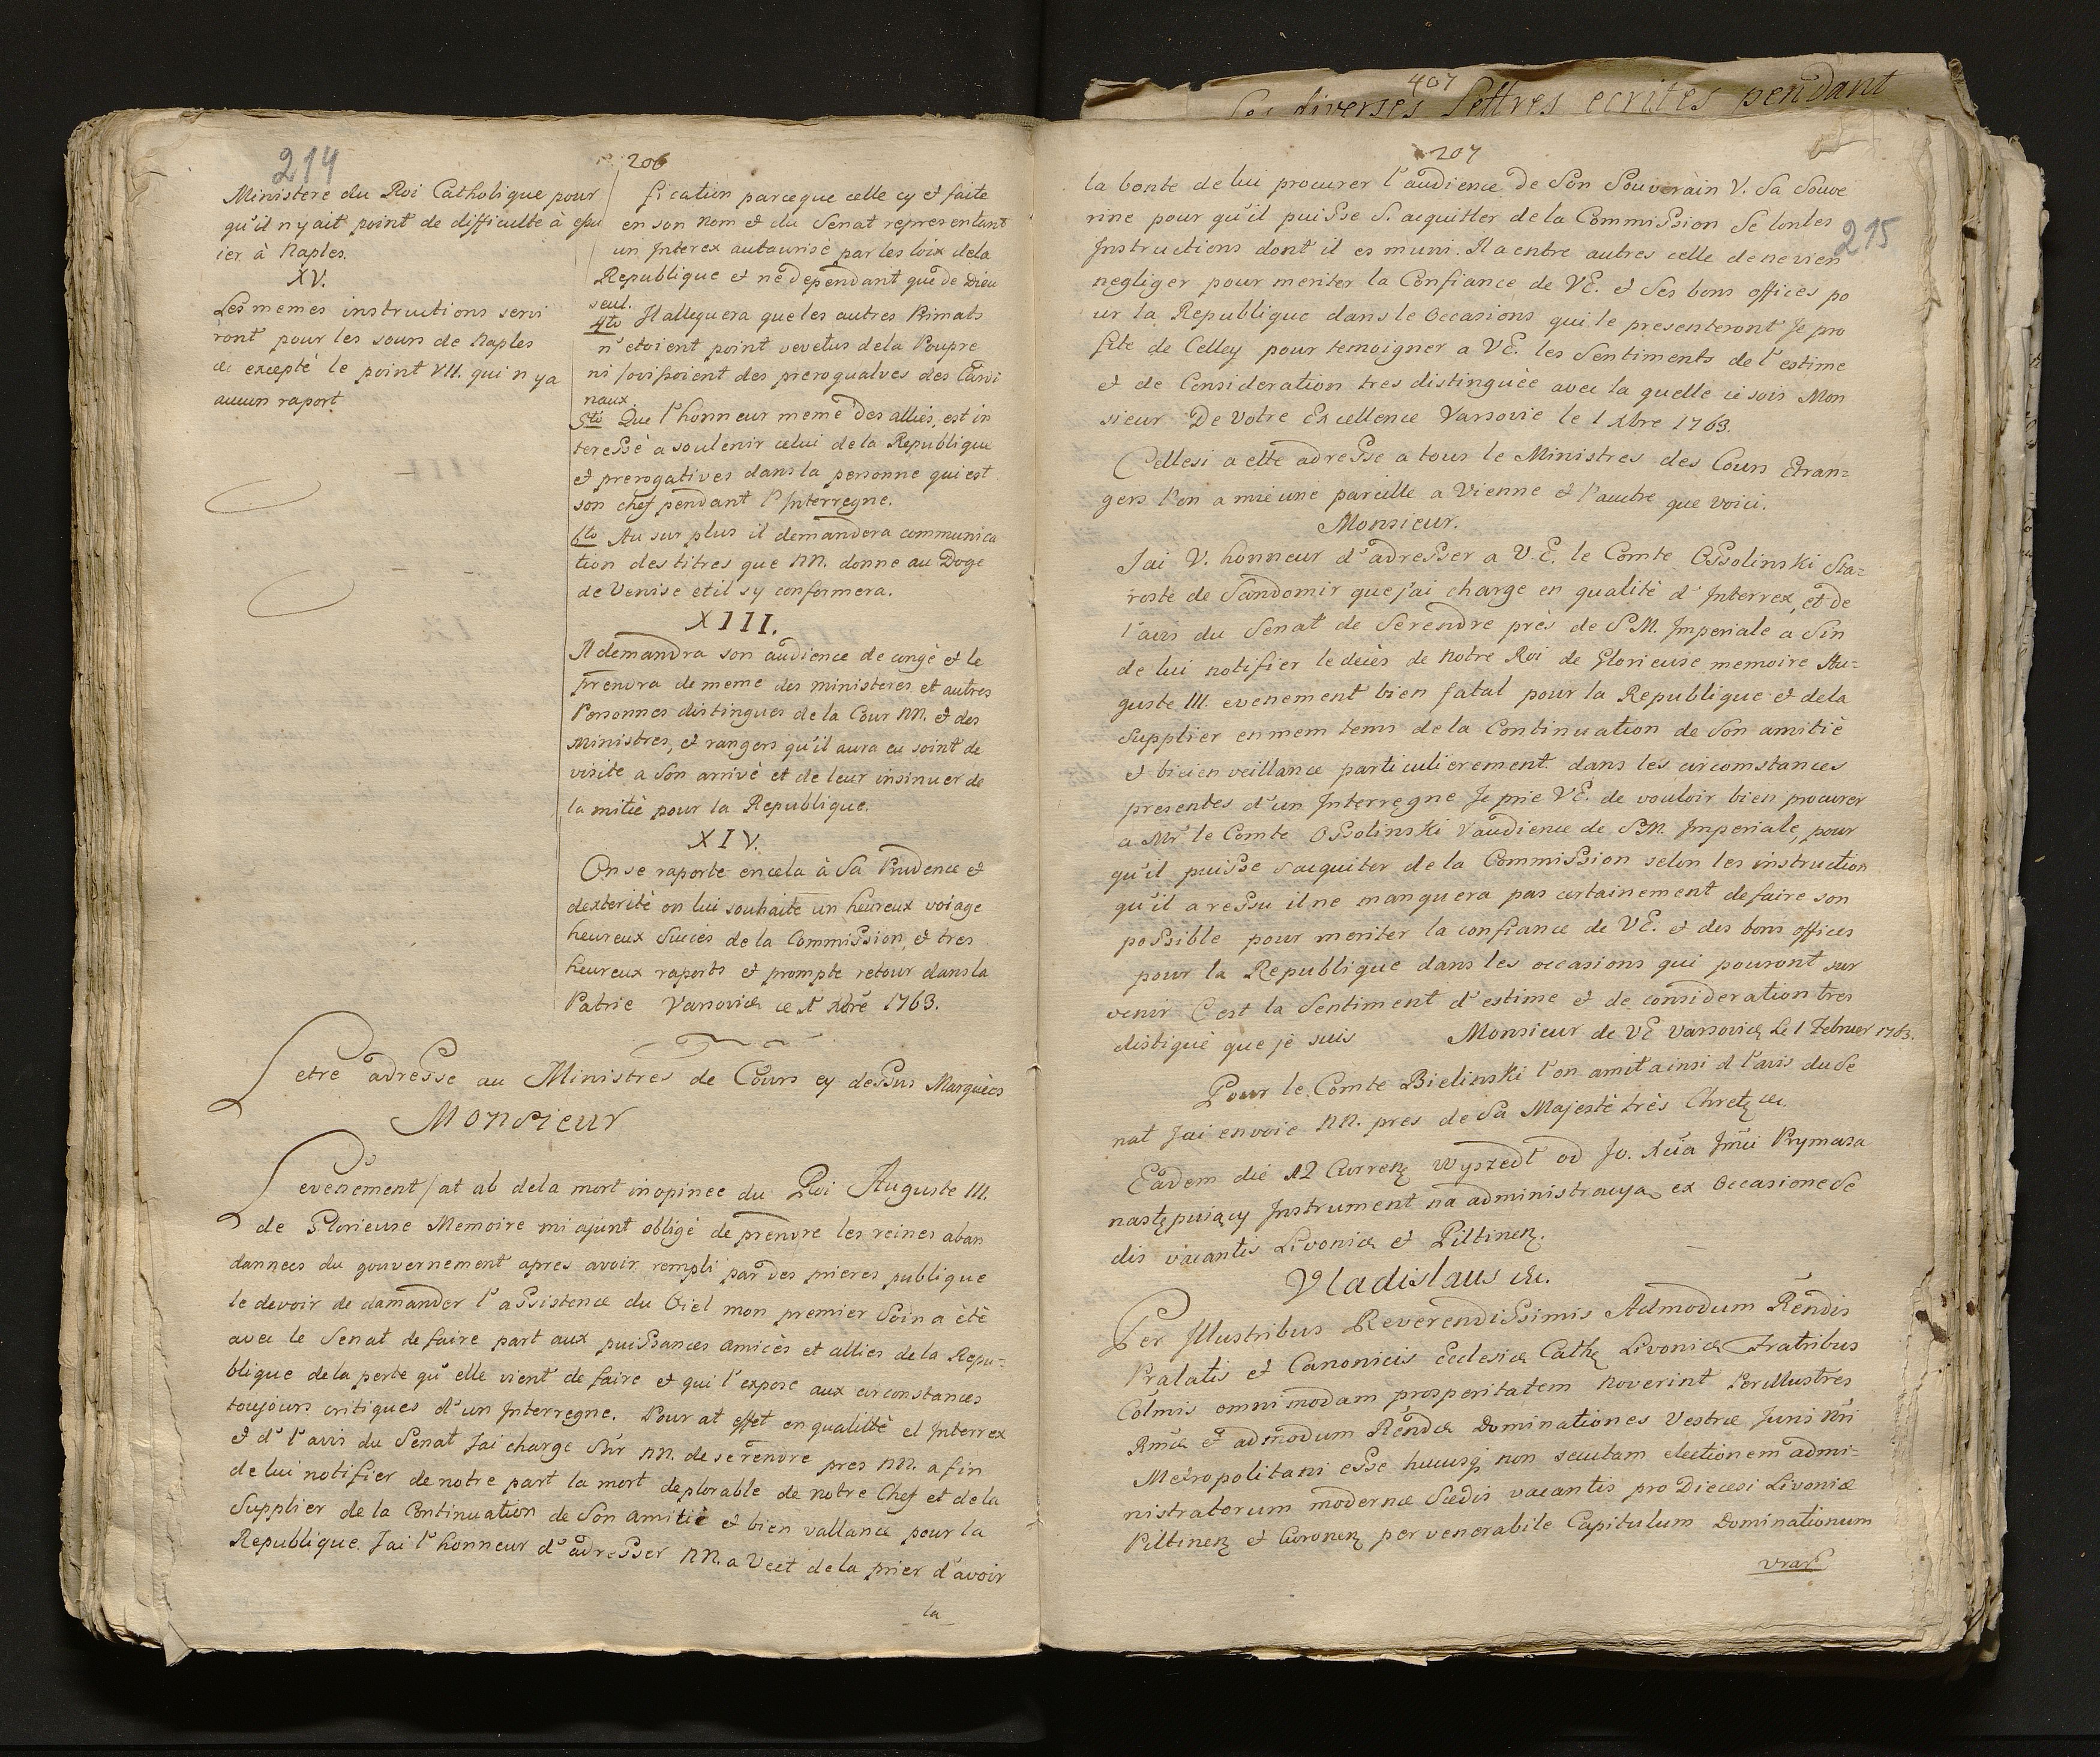 214
206
Ministere du Roi Catholique pour
qu'il n'y ait point de difficulté à
ier à Naples.
XV.
Les memes instructions servi
ront pour les sours de Naples
excepté le point VII. qui n ya
aucun raport
fication parceque celle cy et faite
en son nom et du Senat representant
un Interex autaurisé par les loix dela
Republique et ne dependant que de Dieu
seul.
4to Il alleguera que les autres Primats
n'etoient point vevetus dela Poupre
ni jovissoient des prerogualves des Cardi
naux.
5to Que l'honneur meme des alliés, est in
teressé a soulenir celui de la Republique
et prerogatives dans la personne qui est
son chef pendant l'Interregne.
6to Au sur plus il demandera communica
tion des titres que NN. donne au Doge
de Venise et il s'y conformera.
XIII.
Il demandra son audience de congé et le
prendra de meme des ministeres et autres
Personnes distingues de la Cour NN. et des
Ministres, et rangers qu'il aura eu soint de
visite a son arrivé et de leur insinuer de
la mitié pour la Republique.
XIV.
On se raporte encela à Sa Prudence et
dexterité on lui souhaite un heureux voiage
heureux Succés de la Commission, et tres
heureux raports et prompte retour dans la
Patrie Varsoviæ ce 1 Xbre 1763.
Letre adresse au Ministres de Cours cy dessus Marquées
Monsieur
L'evenement fat al dela mort inopinee du Roi Auguste III.
de Glorieuse Memoire mi ajunt obligé de prendre les reines aban
dannees du gouvernement apres avoir rempli par des prieres publique
le devoir de damander l'assistence du Ciel mon premier Soin a été
avec le Senat de faire part aux puissances amiés et allies de la Repu=
blique dela perte qu'elle vient de faire et qui l'expose aux circonstances
toujours critiques d'un Interregne. Pour at effet en qualitté et Interrex
et d'l'avis du Senat Jai charge Snr NN. de se rendre pres NN. a fin
de lui notifier de notre part la mort deplorable de notre Chef et de la
Supplier de la Continuation de Son amitié et bien vallance pour la
Republique. Jai l'honneur d'adresser NN. a Vect de la prier d'avoir
la
407
Les diverses Lettres ecrites pendant
207
215
la bonte de lui procurer l'audience de Son Souverain V. Sa Souve
rine pour qu'il puisse S. acquitter de la Commission Se lonles
Instructions dont il es muni. Il a entre autres celle de ne rien
negliger pour meriter la Confiance de VE. et Ses bons offices po
ur la Republique dans le Occasions qui le presenteront Je pro
fite de Celley pour temoigner a VE. les Sentiments de l'estime
et de Consideration tres distinguée avec la quelle ie sois Mon
sieur De Votre Excellence Varsovie le 1 Xbre 1763.
Cellesi a ette adresse a tous le Ministres des Cours Etran=
gers l'on a mie une pareille a Vienne et l'auutre que voici.
Monsieur.
Jai V. honneur d'adresser a V.E. le Comte Ossolinski Sta=
roste de Sandomir que j'ai charge en qualité d'Interrex, et de
l'avis du Senat de Serendre prés de S.M. Imperiale a Sin
de lui notifier le decés de notre Roi de Glorieuse memoire Au=
guste III. evenement bien fatal pour la Republique et dela
Supplier enmem tems de la Continuation de Son amitié
et bieien veillance particulierement dans les circomstances
presentes d'un Interregne Je prie VE. de vouloir bien procurer
a Mr le Comte Ossolinski V'audience de S.M. Imperiale, pour
qu'il puisse sacquiter de la Commission selon les instruction
qu'il a ressu il ne manquera pas certainement de faire son
possible pour meriter la confiance de VE. et des bons offices
pour la Republique dans les occasions qui pouront sur
venir C'est la Sentiment d'estime et de consideration tres
distigué que je suis Monsieur de VE varsoviæ Le 1 Februer 1763.
Pour le Comte Bielinski l'on amit ainsi d l'avis du Se
nat Jai envoie NN. pres de Sa Majesté trés Chret &c.
Eadem die 12 Curren wyszedł od Jo. Xcia Jmci Prymasa
następuiący Instrument na administracyą ex Occasione Se
dis vacantis Livoniæ et Piltinen.
Vladislaus &c.
Per Illustribus Reverendissimis Admodum Rendis
Pralatis et Canonicis Ecclesiæ Cath Livoniæ Fratribus
Colmis omnimodam prosperitatem Noverint Perillustres
Rmæ et admodum Rendæ Dominationes Vestræ Juris Nri
Metropolitani esse hucusq non secutam electionem admi=
nistratorum modernæ Sædis vacantis pro Diecesi Livoniæ
Piltinen et Curonen per venerabile Capitulum Dominationum
vrar